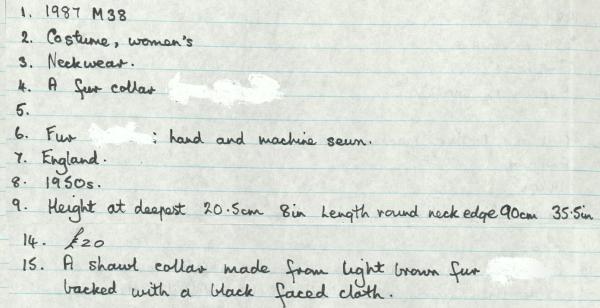 1. 1987 M38
2. Costume, women's
3. Neckwear.
4. A fur collar
5.
6. Fur : hand and machine sewn.
7. England.
8. 1950s.
9. Height at deepest 20.5cm 8in Length round neck edge 90cm 35.5in
14. £20
15. A shawl collar made from light brown fur
backed with a black faced cloth.